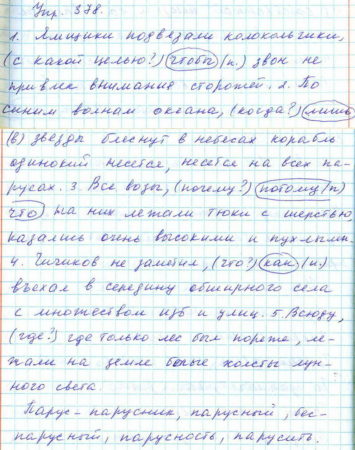 Упр. 378.
1. Ямщики подвязали колокольчики,
(с какой целью?) чтобы (п.) звон не
привлек внимания сторожей. 2. По
синим волнам океана, (когда?) лишь
(в) звезды блеснут в небесах корабль
одинокий несется, несется на всех па-
русах. 3. Все возы, (почему?) потому (п)
что на них лежали тюки с шерстью
казались очень высокими и пухлыми.
4. Чичиков не заметил, (что?) как (п.)
въехал в середину обширного села
с множеством изб и улиц. 5. Всюду,
(где?) где только лес был пореже, ле-
жали на земле белые холсты лун-
ного света.
Парус - парусник, парусный, бес-
парусный, парусность, парусить.